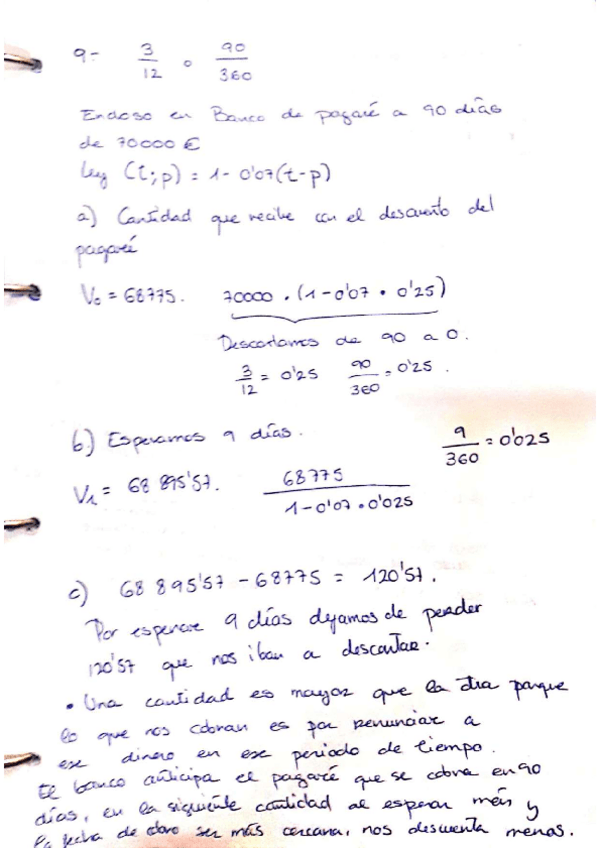 9- 3/12 o 90/360
Endoso en Banco de pagaré a 90 días
de 70000 €
Ley (t;p) = 1 - 0'07(t-p)
a) Cantidad que recibe con el descuento del
pagaré
V₀ = 68775. 70000 . (1-0'07 . 0'25)
Descontamos de 90 a 0.
3/12 = 0'25 90/360 = 0'25.
b) Esperamos 9 días. 9/360 = 0'025
V₁ = 68 895'57. 68775/1-0'07.0'025
c) 68 895'57 - 68775 = 120'57.
Por esperar 9 días dejamos de perder
120'57 que nos iban a descontar.
• Una cantidad es mayor que la otra porque
lo que nos cobran es por renunciar a
ese dinero en ese periodo de tiempo.
El banco anticipa el pagaré que se cobra en 90
días, en la siguiente cantidad al esperar y
la fecha de cobro ser más cercana, nos descuenta menos.